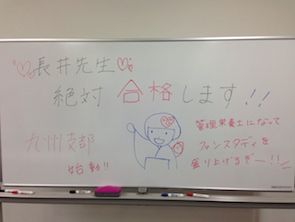 長井先生
絶対 合格します!!
九州支部
始動!!
管理栄養士になって
ファンスタディを
盛り上げるぞー!!